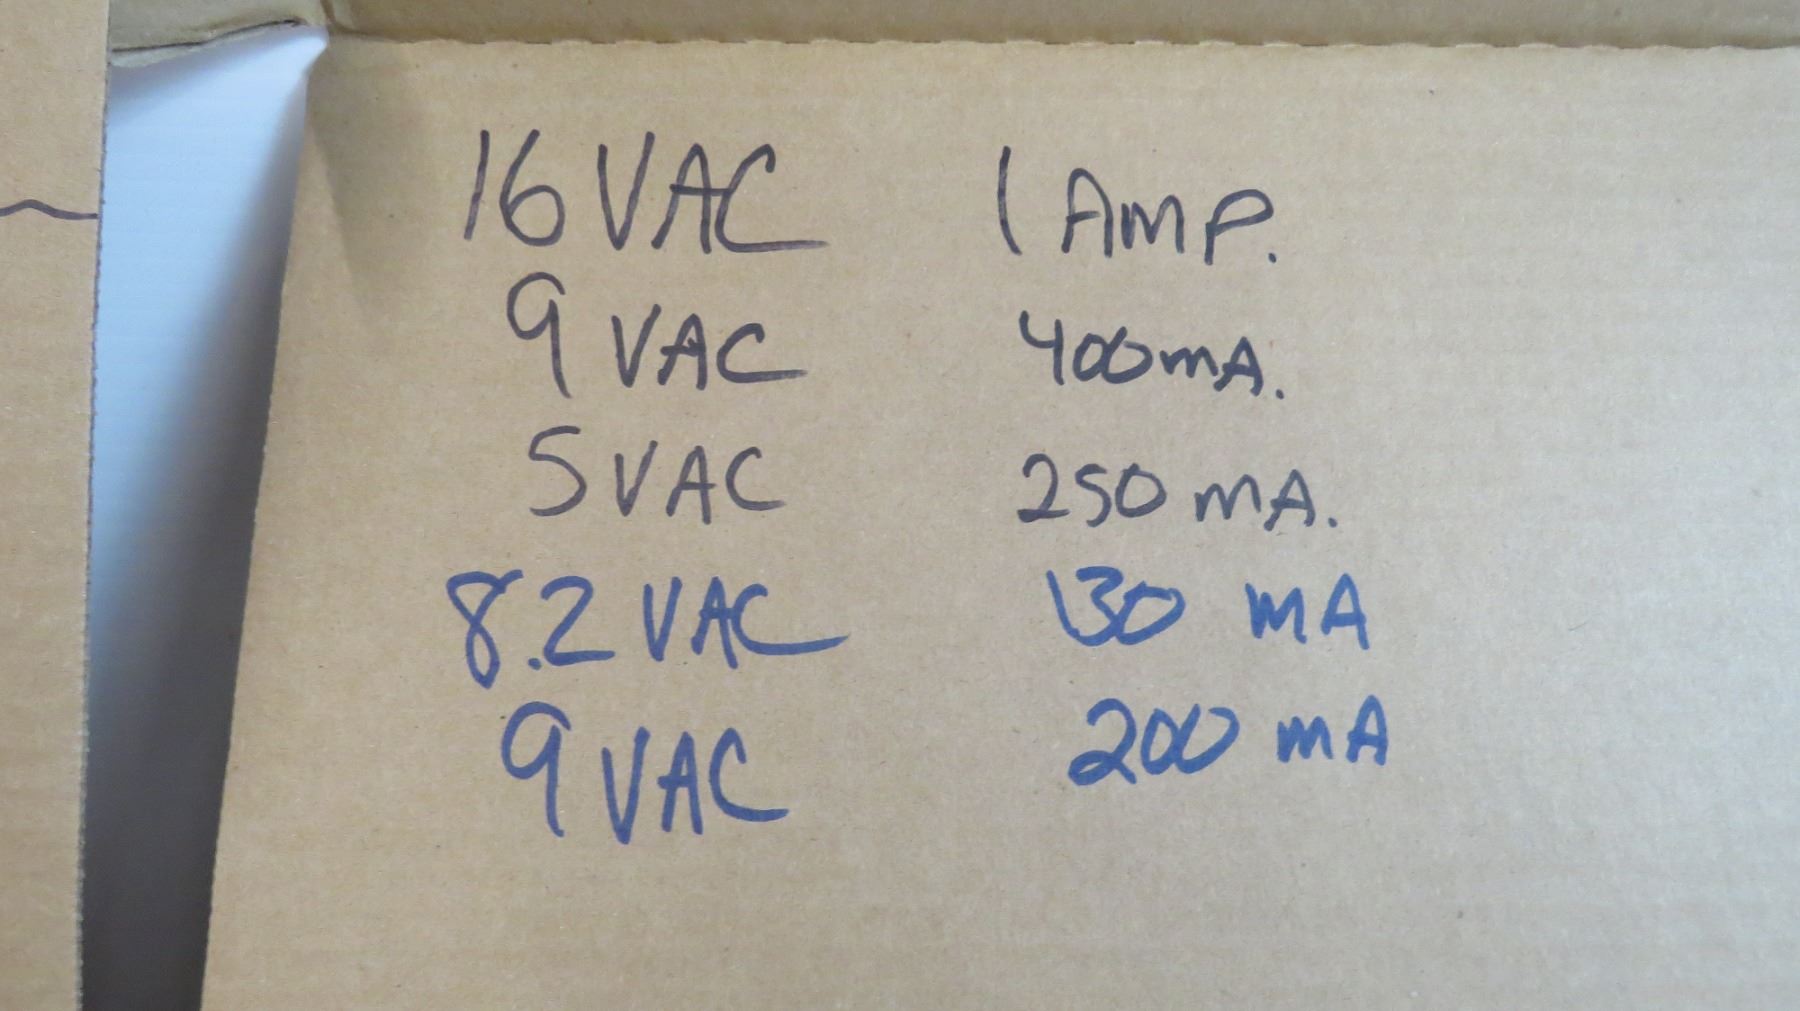 16 VAC 1 AMP.
9 VAC 400mA.
5 VAC 250 mA.
8.2 VAC 130 mA
9 VAC 200 mA